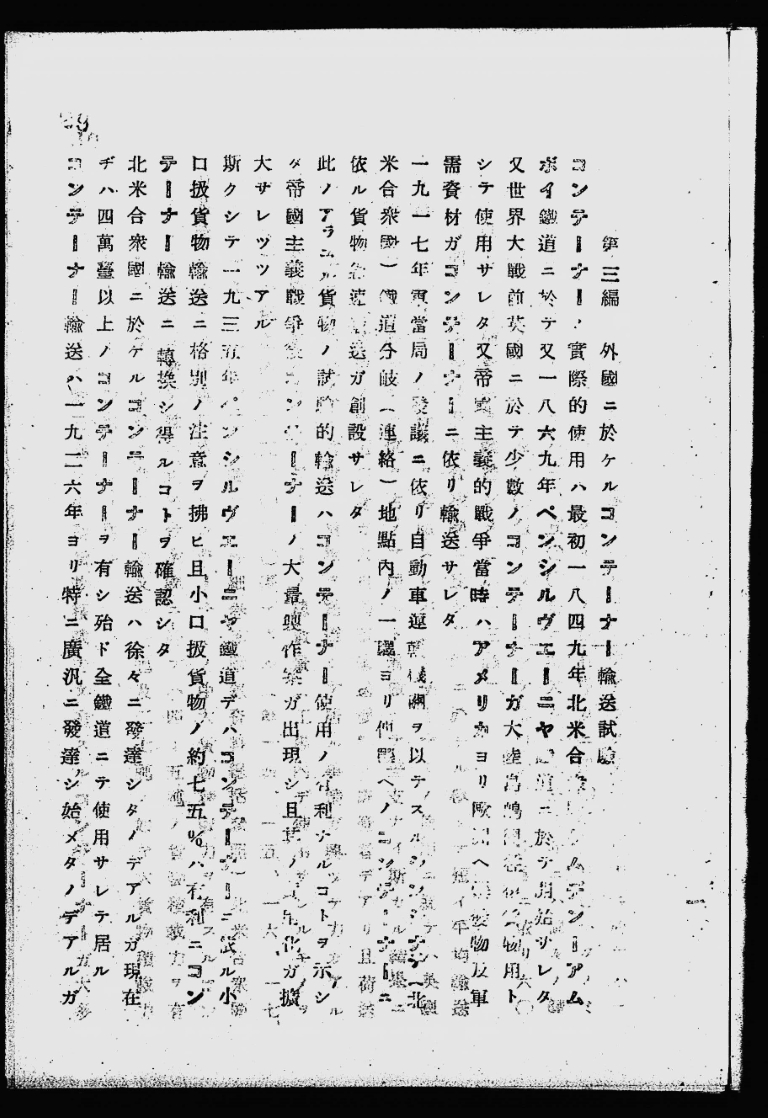 第三編 外國ニ於ケルコンテーナー輸送試驗
コンテーナーノ實際的使用ハ最初一八四九年北米合 ムデンーアム
ボイ鐵道ニ於テ又一八六九年ペンシルヴエーニヤ 道ニ於テ開始サレタ
又世界大戰前英國ニ於テ少數ノコンテーナーガ大陸 用ト
シテ使用サレタ又帝國主義的戰爭當時ハアメリカヨリ歐洲ヘ 物及軍
需資材ガコンテーナーニ依リ輸送サレタ
一九一七年 當局ノ發議ニ依リ自動車運 機關ヲ以テスルシンシナテ(北
米合衆國)鐵道分岐(連絡)地點內ノ一驛ヨリ他驛ヘノコンテーナーニ
依ル貨物 送ガ創設サレタ
此ノアラユル貨物ノ試驗的輸送ハコンテーナー使用ノ有利ナルコトヲ示シ
タ帝國主義戰爭後コンテーナーノ大量製作案ガ出現シ且其ノ 化ガ擴
大サレツツアル
斯クシテ一九三五年ペンシルヴエーニヤ鐵道デハコンテーナーニ依ル小
口扱貨物輸送ニ格別ノ注意ヲ拂ヒ且小口扱貨物ノ約七五%ハ有利ニコン
テーナー輸送ニ轉換シ得ルコトヲ確認シタ
北米合衆國ニ於ケルコンテーナー輸送ハ徐々ニ發達シタノデアルガ現在
デハ四萬臺以上ノコンテーナーヲ有シ殆ド全鐵道ニテ使用サレテ居ル
コンテーナー輸送ハ一九二六年ヨリ特ニ廣汎ニ發達シ始メタノデアルガ